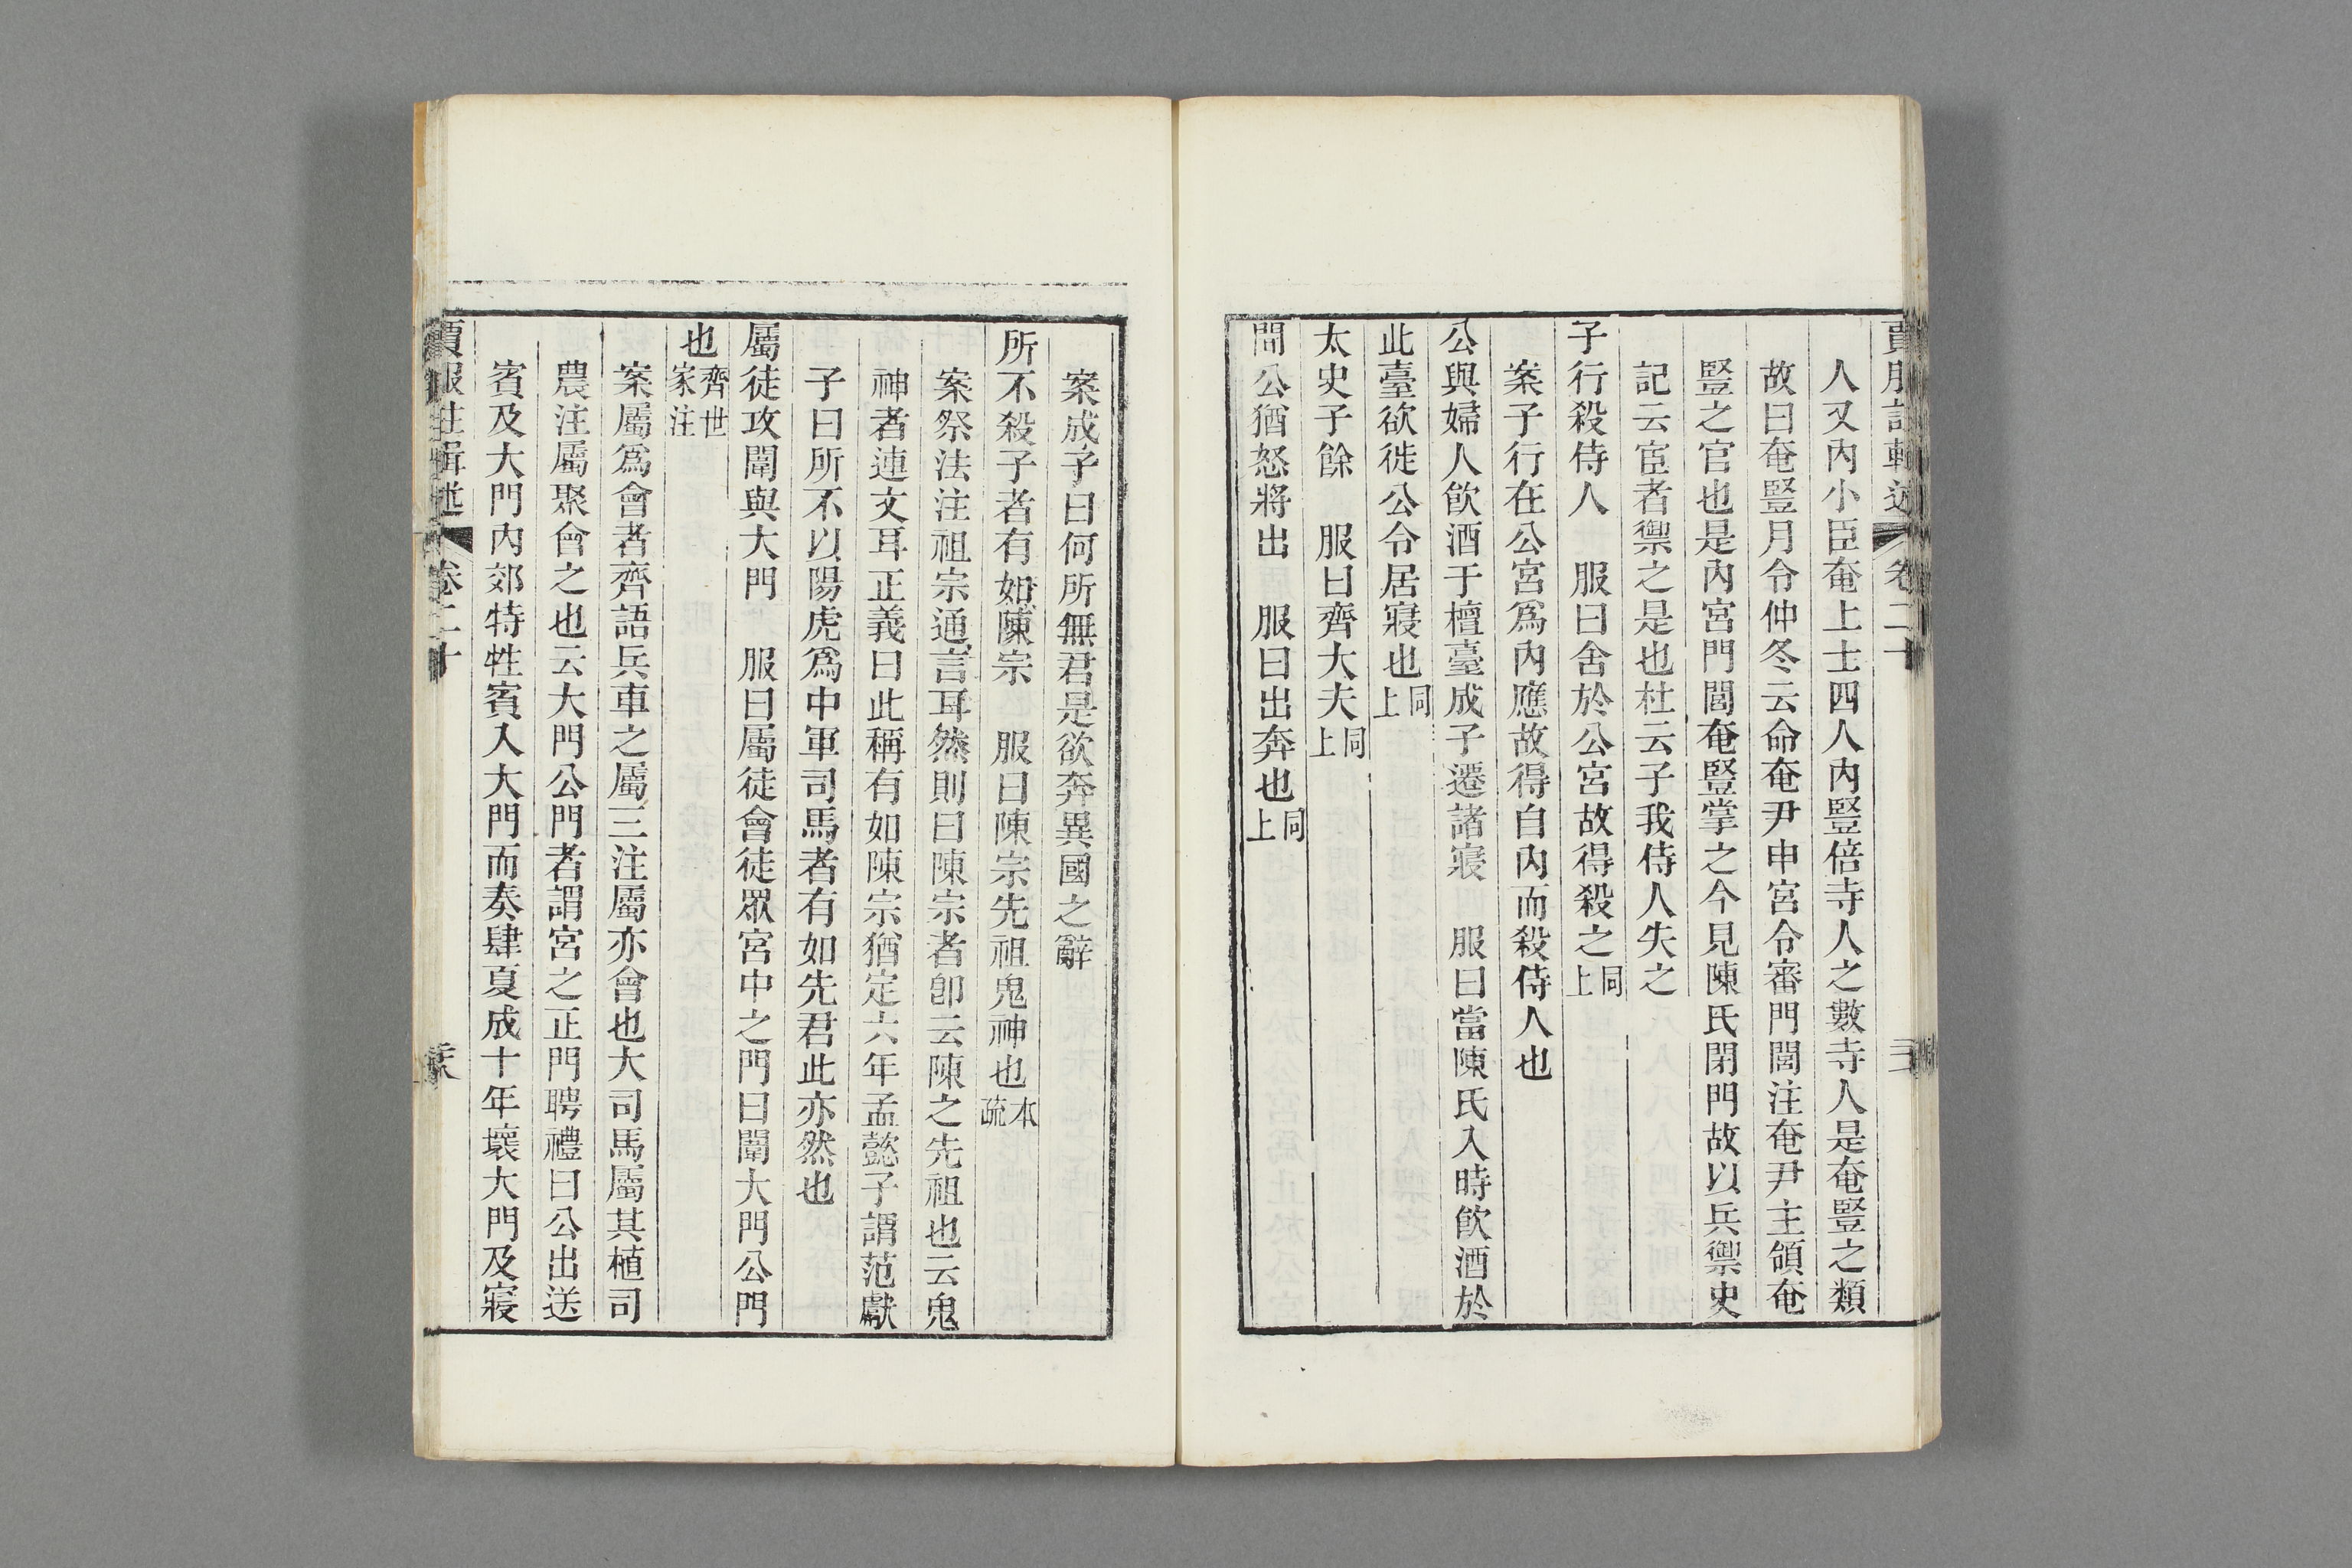 賈服註輯述 卷二十
人又內小臣奄上士四人內豎倍寺人之數寺人是奄豎之類
故曰奄豎月令仲冬云命奄尹申宮令審門閭注奄尹主領奄
豎之官也是內宮門閭奄豎掌之今見陳氏閉門故以兵禦史
記云宦者禦之是也杜云子我侍人失之
子行殺侍人 服曰舍於公宮故得殺之同上
案子行在公宮爲內應故得自內而殺侍人也
公與婦人飮酒于檀臺成子遷諸寢 服曰當陳氏入時飮酒於
此臺欲徙公令居寢也同上
太史子餘 服曰齊大夫同上
聞公猶怒將出 服曰出奔也同上
案成子曰何所無君是欲奔異國之辭
所不殺子者有如陳宗 服曰陳宗先祖鬼神也本疏
案祭法注祖宗通言耳然則曰陳宗者卽云陳之先祖也云鬼
神者連文耳正義曰此稱有如陳宗猶定六年孟懿子謂范獻
子曰所不以陽虎爲中軍司馬者有如先君此亦然也
屬徒攻闈與大門 服曰屬徒會徒眾宮中之門曰闈大門公門
也齊世家注
案屬爲會者齊語兵車之屬三注屬亦會也大司馬屬其植司
農注屬聚會之也云大門公門者謂宮之正門聘禮曰公出送
賓及大門內郊特牲賓入大門而奏肆夏成十年壞大門及寢
賈服註輯述 卷二十